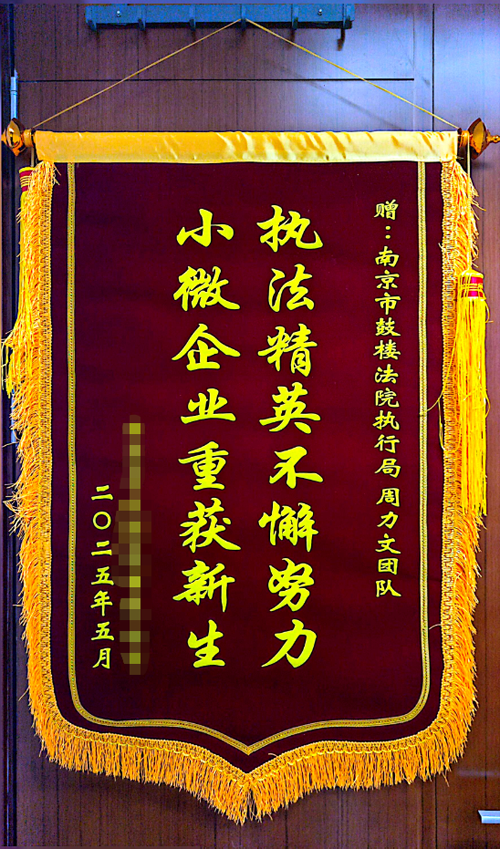 赠：南京市鼓楼法院执行局 周力文团队
执法精英不懈努力
小微企业重获新生
二〇二五年五月